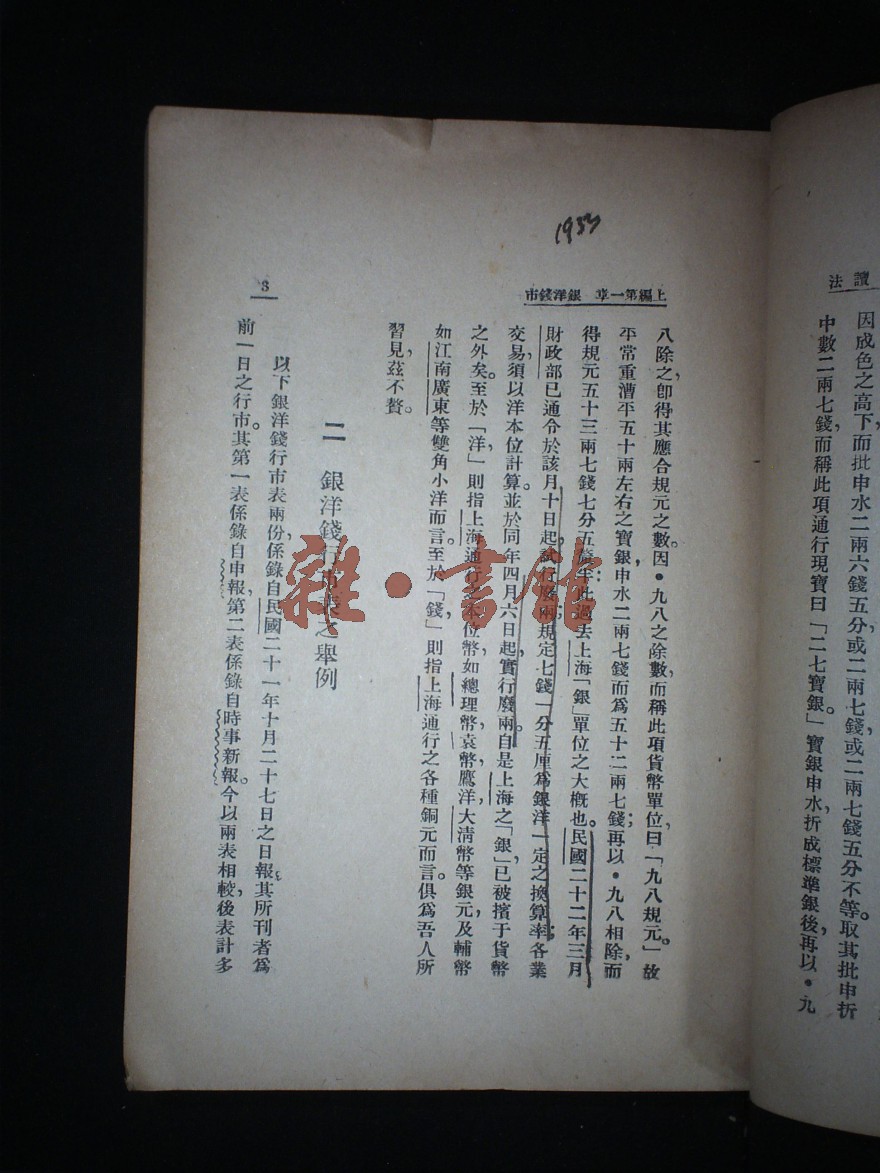 讀法
因成色之高下，而批申水二兩六錢五分，或二兩七錢，或二兩七錢五分不等。取其批申折
中數二兩七錢，而稱此項通行現寶曰「二七寶銀。」寶銀申水折成標準銀後，再以·九
1933
上編第一章　銀洋錢市
3
八除之，卽得其應合規元之數。因·九八之除數，而稱此項貨幣單位，曰「九八規元。」故
平常重漕平五十兩左右之寶銀，申水二兩七錢而爲五十二兩七錢；再以·九八相除，而
得規元五十三兩七錢七分五釐半，此過去上海「銀」單位之大槪也。民國二十二年三月
財政部已通令於該月十日起，試行廢兩，規定七錢一分五厘爲銀洋一定之換算率；各業
交易，須以洋本位計算。並於同年四月六日起，實行廢兩。自是上海之「銀」，已被擯于貨幣
之外矣。至於「洋」則指上海通行之本位幣，如總理幣，袁幣，鷹洋，大淸幣等銀元，及輔幣
如江南廣東等雙角小洋而言。至於「錢」則指上海通行之各種銅元而言。俱爲吾人所
習見，茲不贅。
二　銀洋錢行市表之舉例
以下銀洋錢行市表兩份，係錄自民國二十一年十月二十七日之日報，其所刊者爲
前一日之行市。其第一表係錄自申報，第二表係錄自時事新報。今以兩表相較，後表計多
雜·書館